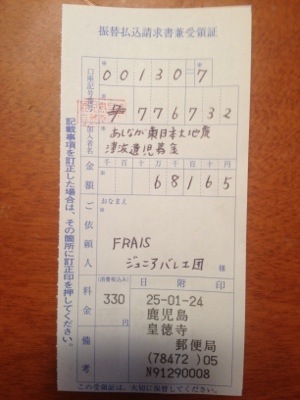 振替払込請求書兼受領証
口座記号番号
00130=7
7 776732
加入者名
あしなが東日本大地震
津波遺児募金
金額
千 百 十 万 千 百 十 円
68165
ご依頼人
おなまえ
FRAIS
ジュニアバレエ団
様
料金
(消費税込み)
330
円
備考
日附印
25-01-24
鹿児島
皇徳寺
郵便局
(78472)05
N91290008
記載事項を訂正した場合は、その箇所に訂正印を押してください。
この受領証は、大切に保管してください。